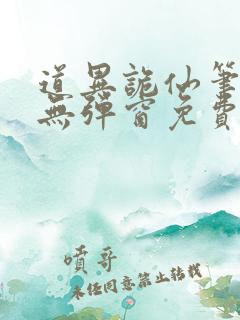 道異詭仙筆
無彈窗免費
噴哥
未经同意禁止转载